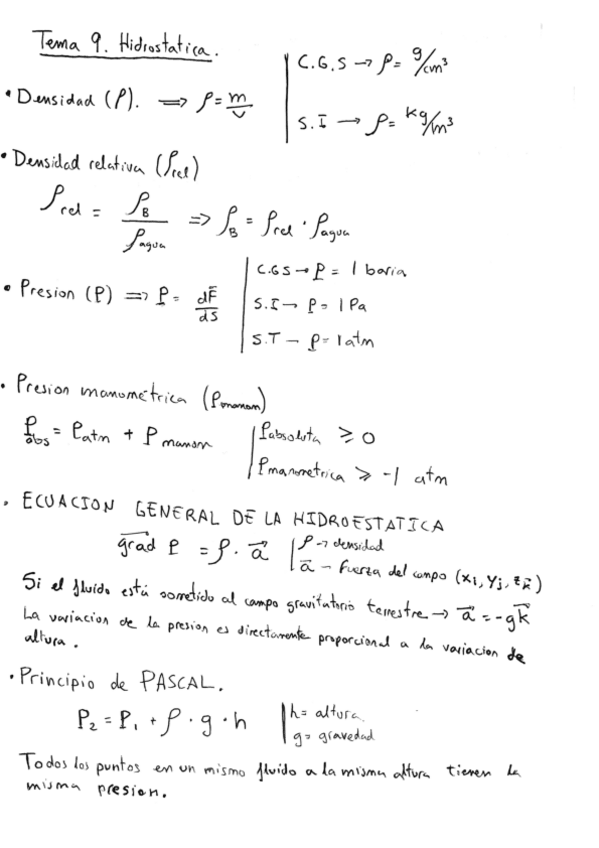 Tema 9. Hidrostatica.
C.G.S → ρ = g/cm³
• Densidad (ρ). ⟹ ρ = m/V
S.I → ρ = kg/m³
• Densidad relativa (ρrel)
ρrel = ρB/ρagua ⟹ ρB = ρrel · ρagua
• Presion (P) ⟹ P = dF̄/dS
C.G.S → P = 1 baria
S.I → P = 1 Pa
S.T – P = 1 atm
• Presion manométrica (Pmanom)
Pabs = Patm + Pmanom
Pabsoluta ≥ 0
Pmanometrica ≥ -1 atm
• ECUACION GENERAL DE LA HIDROESTATICA
grad⃗ P = ρ · a⃗
ρ → densidad
a⃗ – fuerza del campo (xi, yj, zk)
Si el fluido está sometido al campo gravitatorio terrestre → a⃗ = -gk⃗
La variacion de la presion es directamente proporcional a la variacion de
altura.
• Principio de PASCAL.
P₂ = P₁ + ρ · g · h
h = altura.
g = gravedad
Todos los puntos en un mismo fluido a la misma altura tienen la
misma presion.